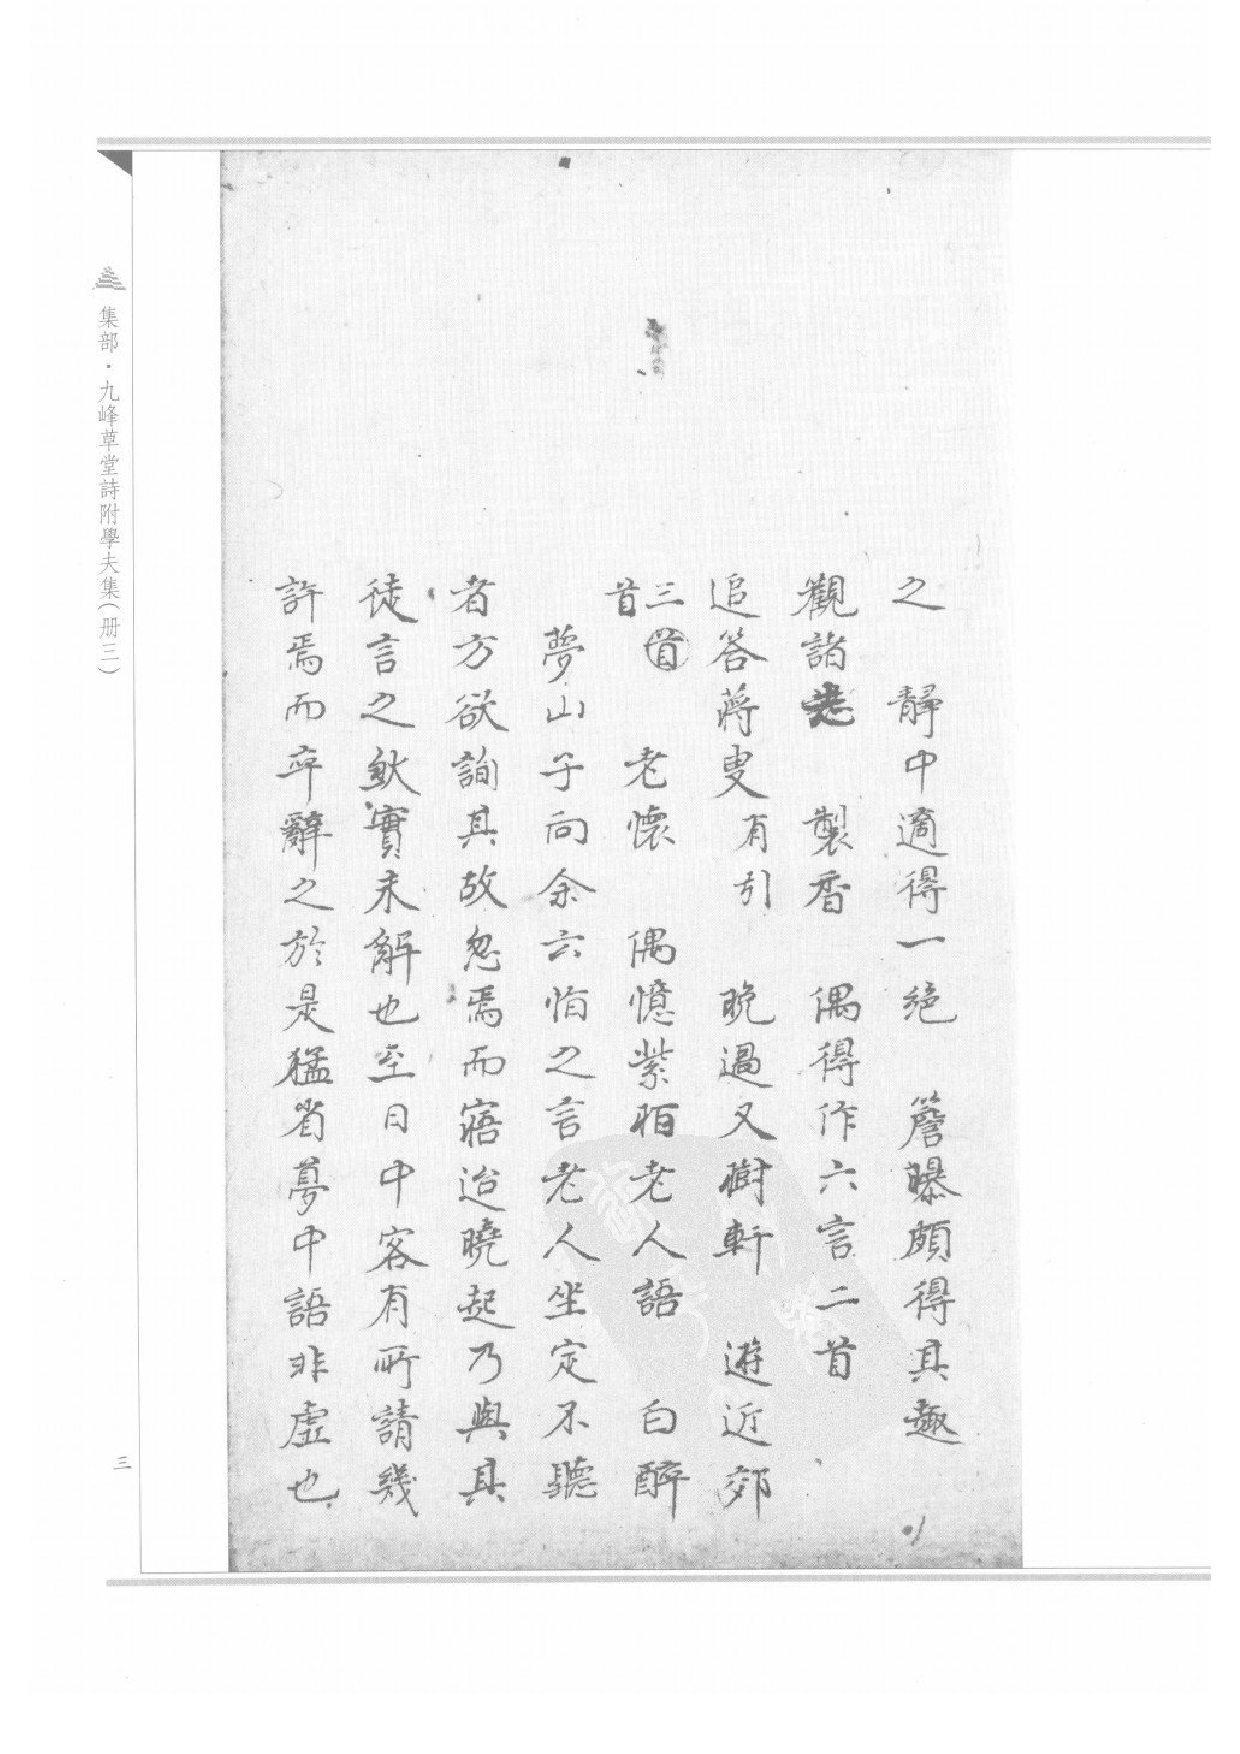 之　靜中適得一絕　簷曝頗得其趣
觀諸老　製香　偶得作六言二首
追答蔣叟有引　晚過又樹軒　遊近郊
三首　老懷　偶憶紫柏老人語　白醉
首
夢山子向余云怕之言老人坐定不聽
者方欲詢其故忽焉而寤迨曉起乃與其
徒言之猷實未解也至日中客有所請幾
許焉而卒辭之於是猛省夢中語非虛也
集部·九峰草堂詩附學夫集（册三）
三